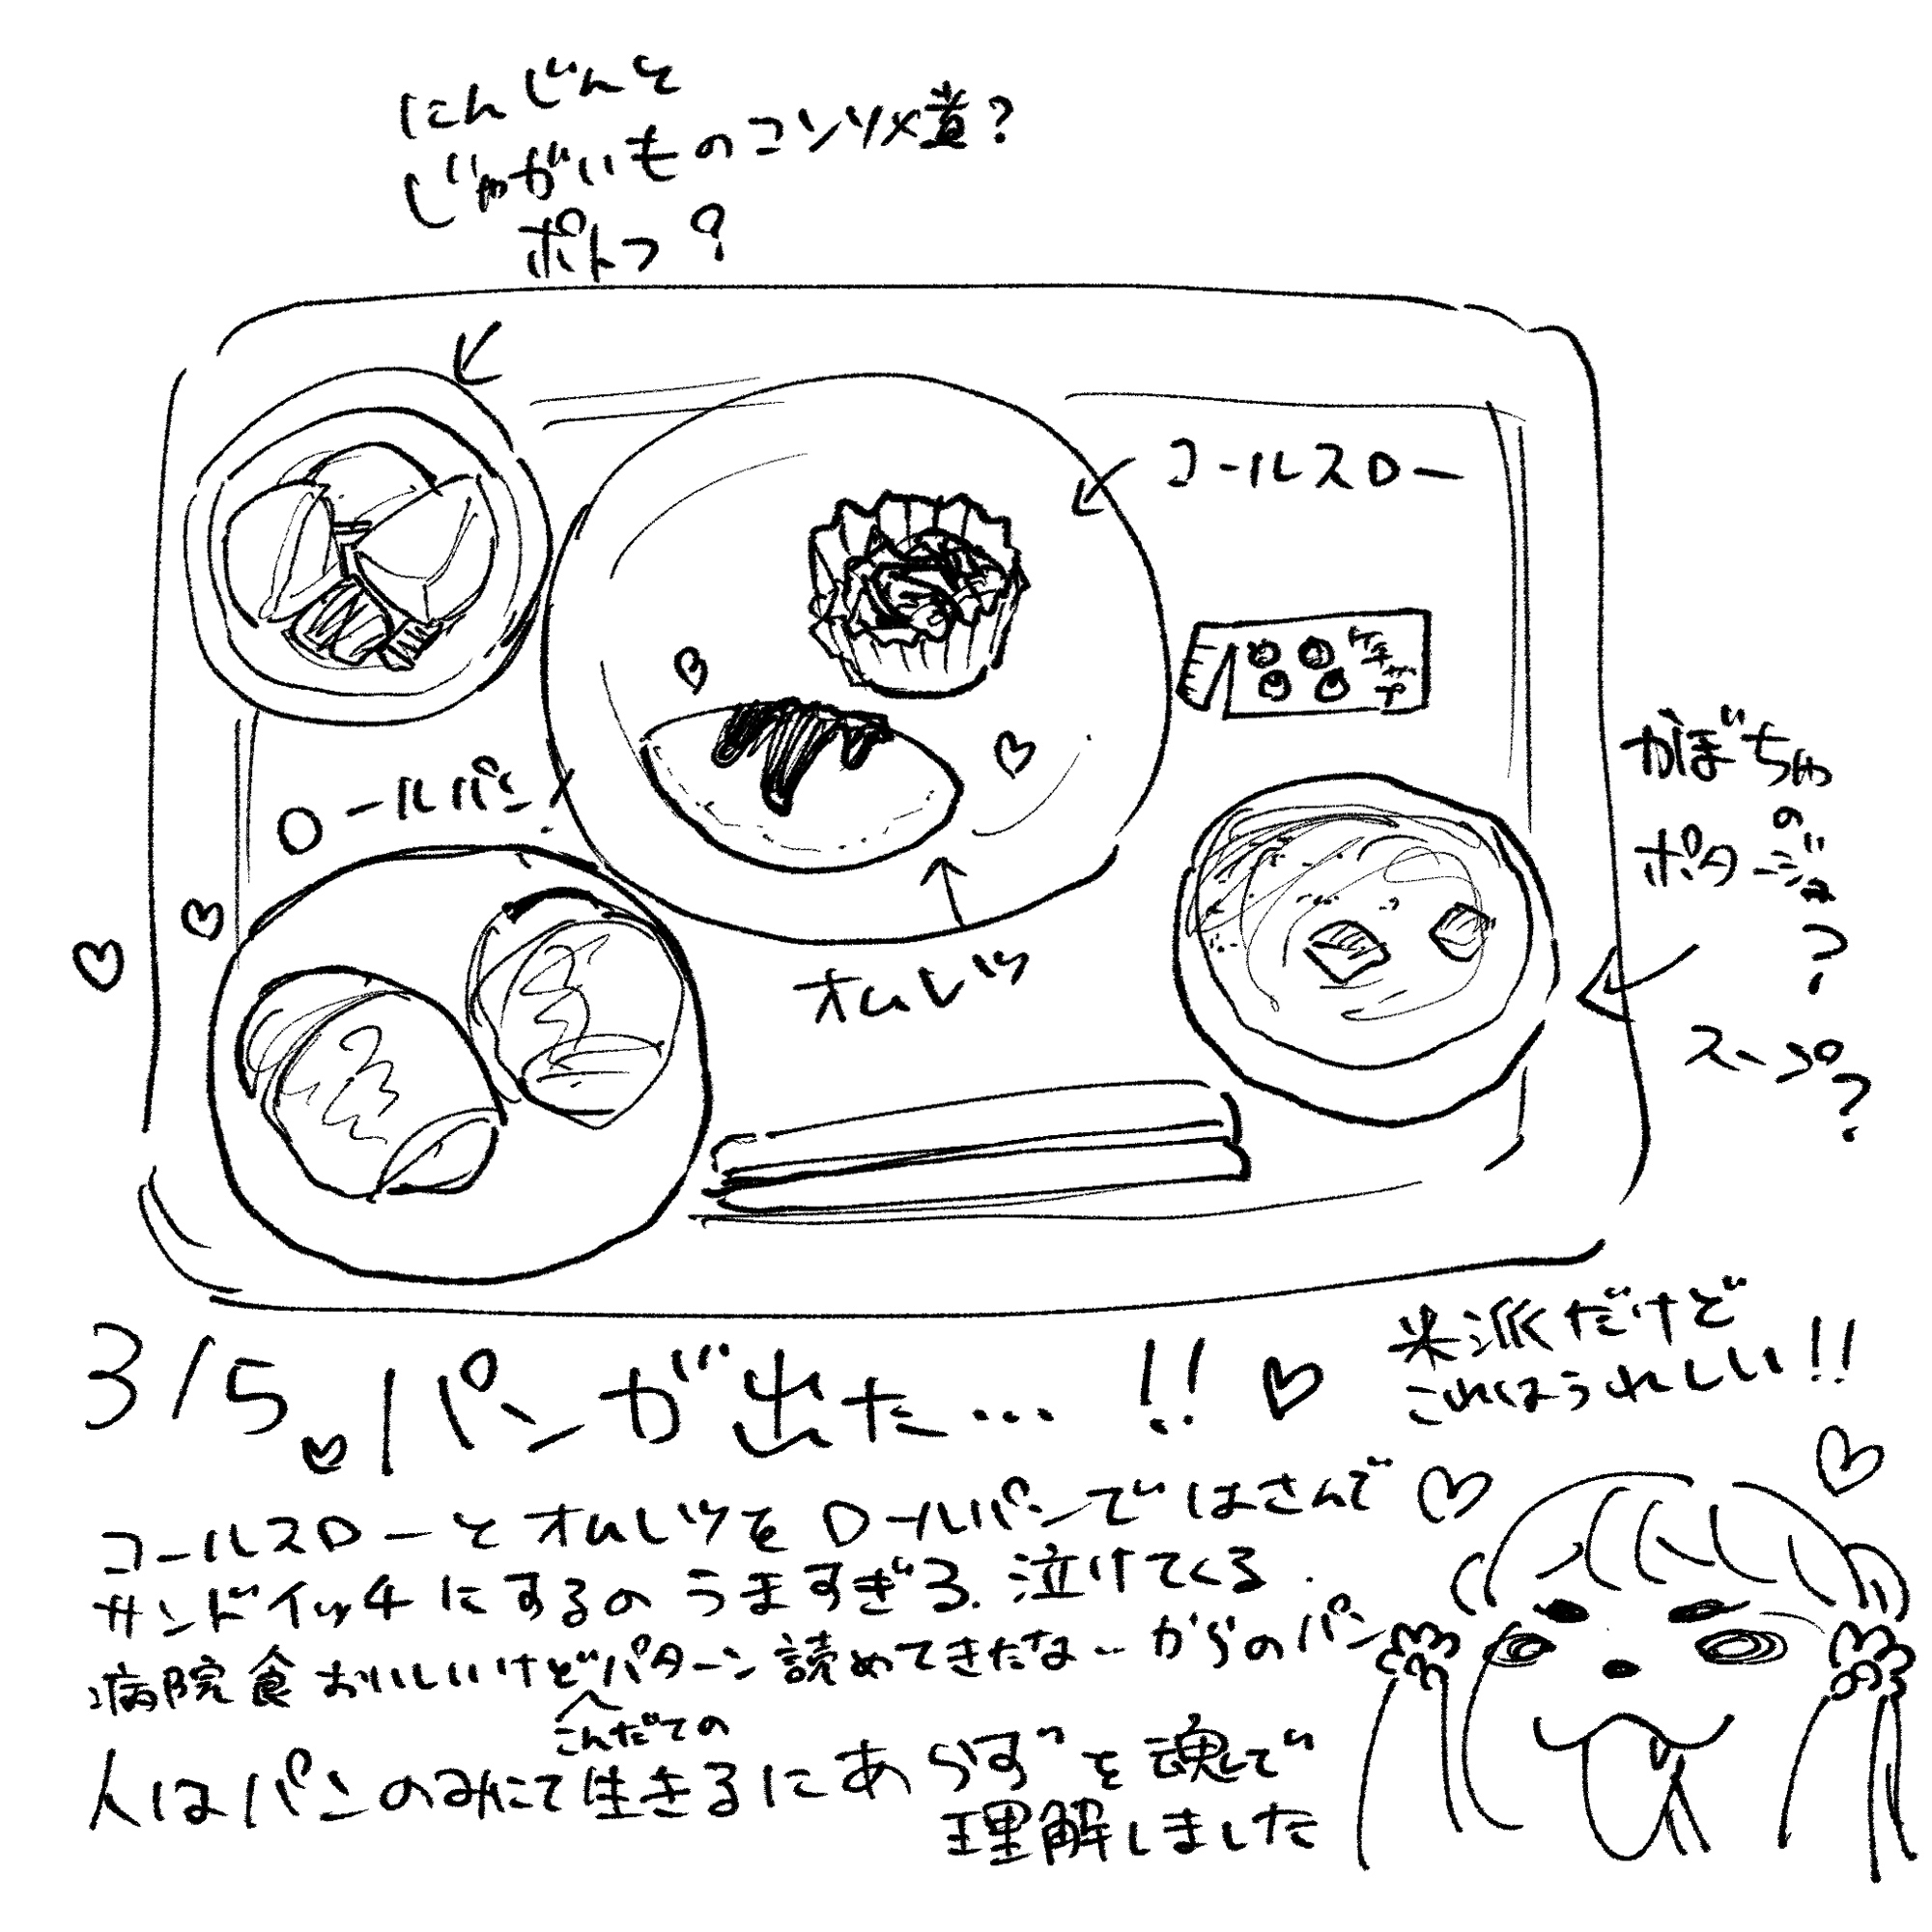 にんじんと
じゃがいものコンソメ煮?
ポトフ?
コールスロー
ケチャップ
かぼちゃ
の
ポタージュ
?
スープ?
ロールパン
オムレツ
3/5 パンが出た…!!
米派だけど
これはうれしい!!
コールスローとオムレツをロールパンではさんで
サンドイッチにするのうますぎる.泣けてくる.
病院食おいしいけどパターン読めてきたな…からのパン
こんだての
人はパンのみにて生きるにあらずを魂で
理解しました